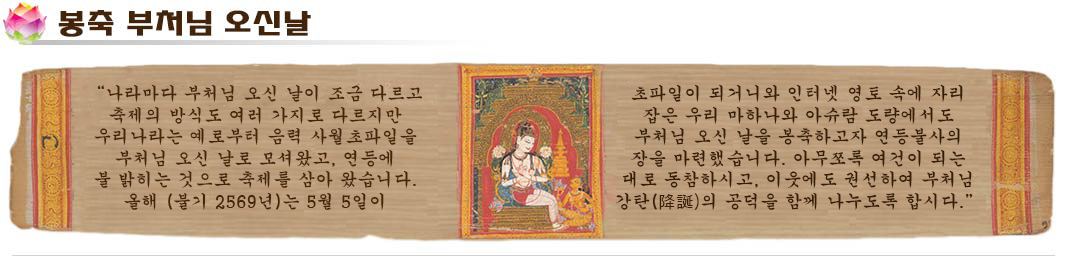 봉축 부처님 오신날
“나라마다 부처님 오신 날이 조금 다르고
축제의 방식도 여러 가지로 다르지만
우리나라는 예로부터 음력 사월초파일을
부처님 오신 날로 모셔왔고, 연등에
불 밝히는 것으로 축제를 삼아 왔습니다.
올해 (불기 2569년)는 5월 5일이
초파일이 되거니와 인터넷 영토 속에 자리
잡은 우리 마하나와 아슈람 도량에서도
부처님 오신 날을 봉축하고자 연등불사의
장을 마련했습니다. 아무쪼록 여건이 되는
대로 동참하시고, 이웃에도 권선하여 부처님
강탄(降誕)의 공덕을 함께 나누도록 합시다.”